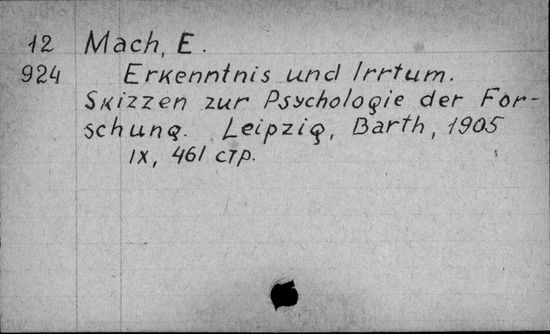 12 Mach, E.
924 Erkenntnis und Irrtum.
Skizzen zur Psychologie der For-
schung. Leipzig, Barth, 1905
IX, 461 стр.